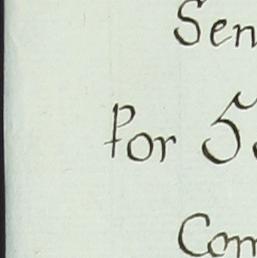 Sen
Por 5
Com